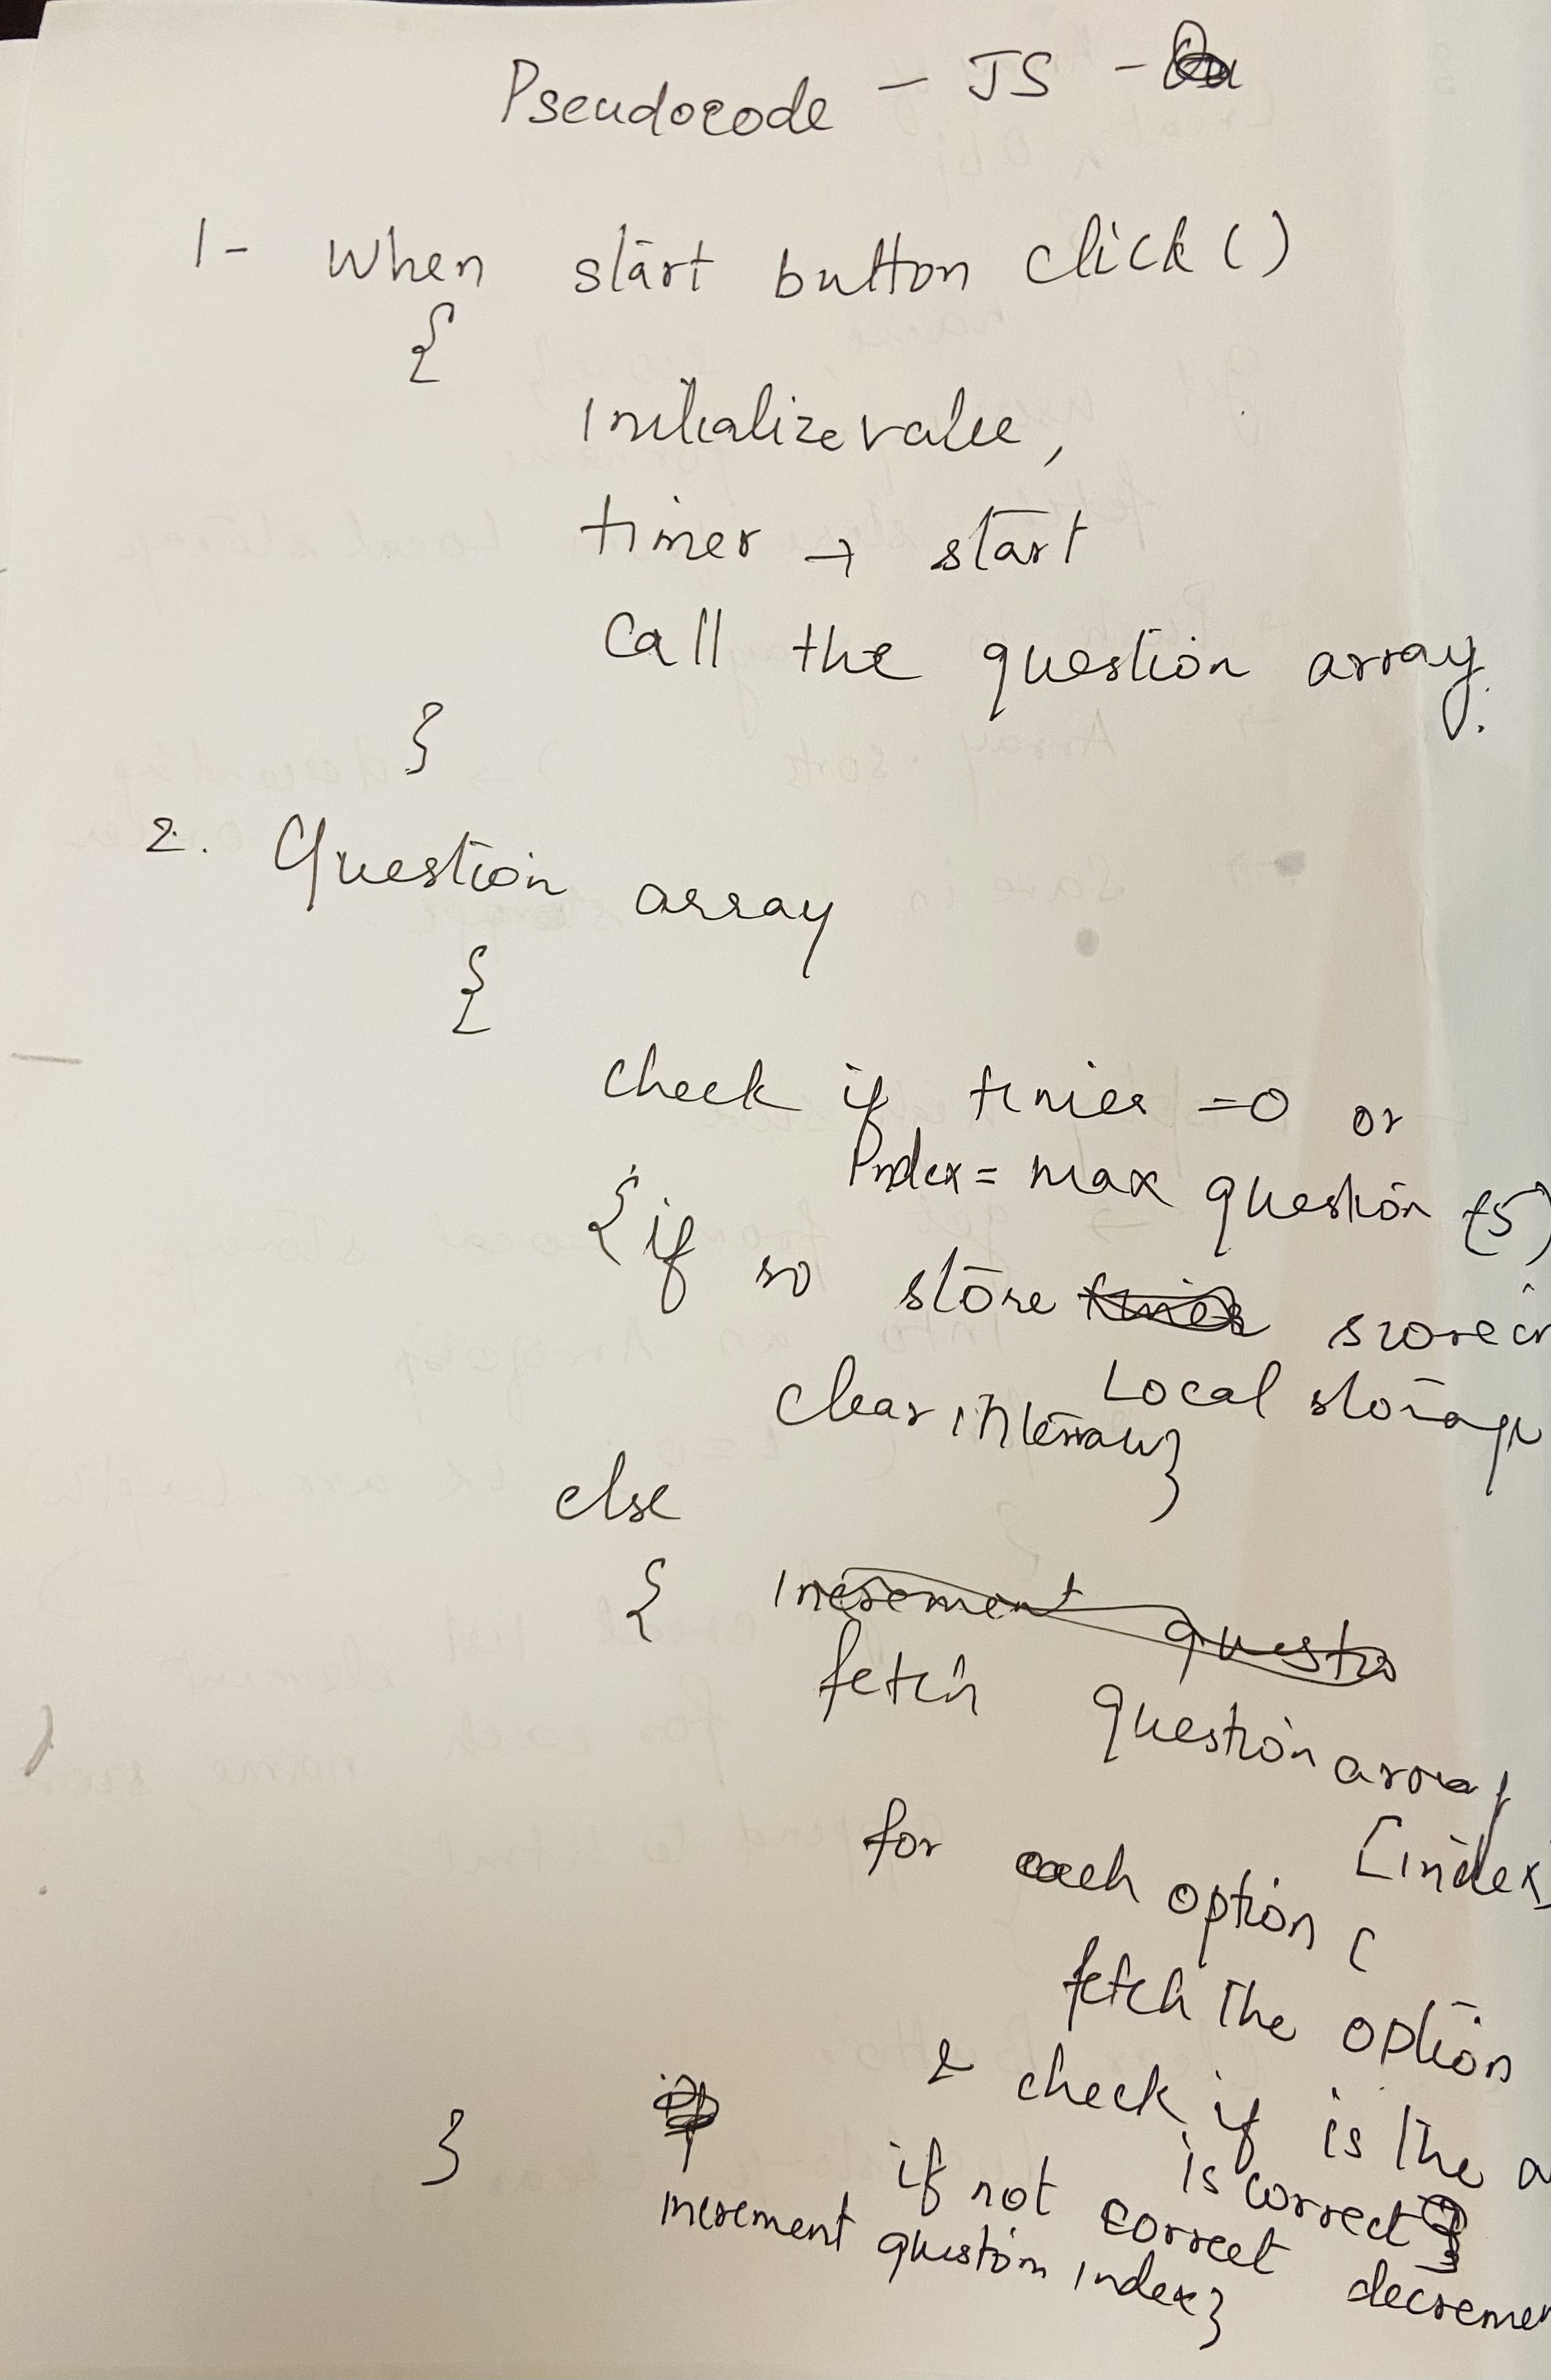 Pseudocode - JS - Qu
1- When start button click ()
{
Initialize value,
timer → start
Call the question array.
}
2. Question array
{
check if timer =0 or
Index = max question (5)
{ if so store timer score in
Local storage
clear interval }
else
{ Increment questio
fetch question array
[index]
for each option (
fetch the option
& check if is the a
is correct }
if not correct decremen
}
increment question index }